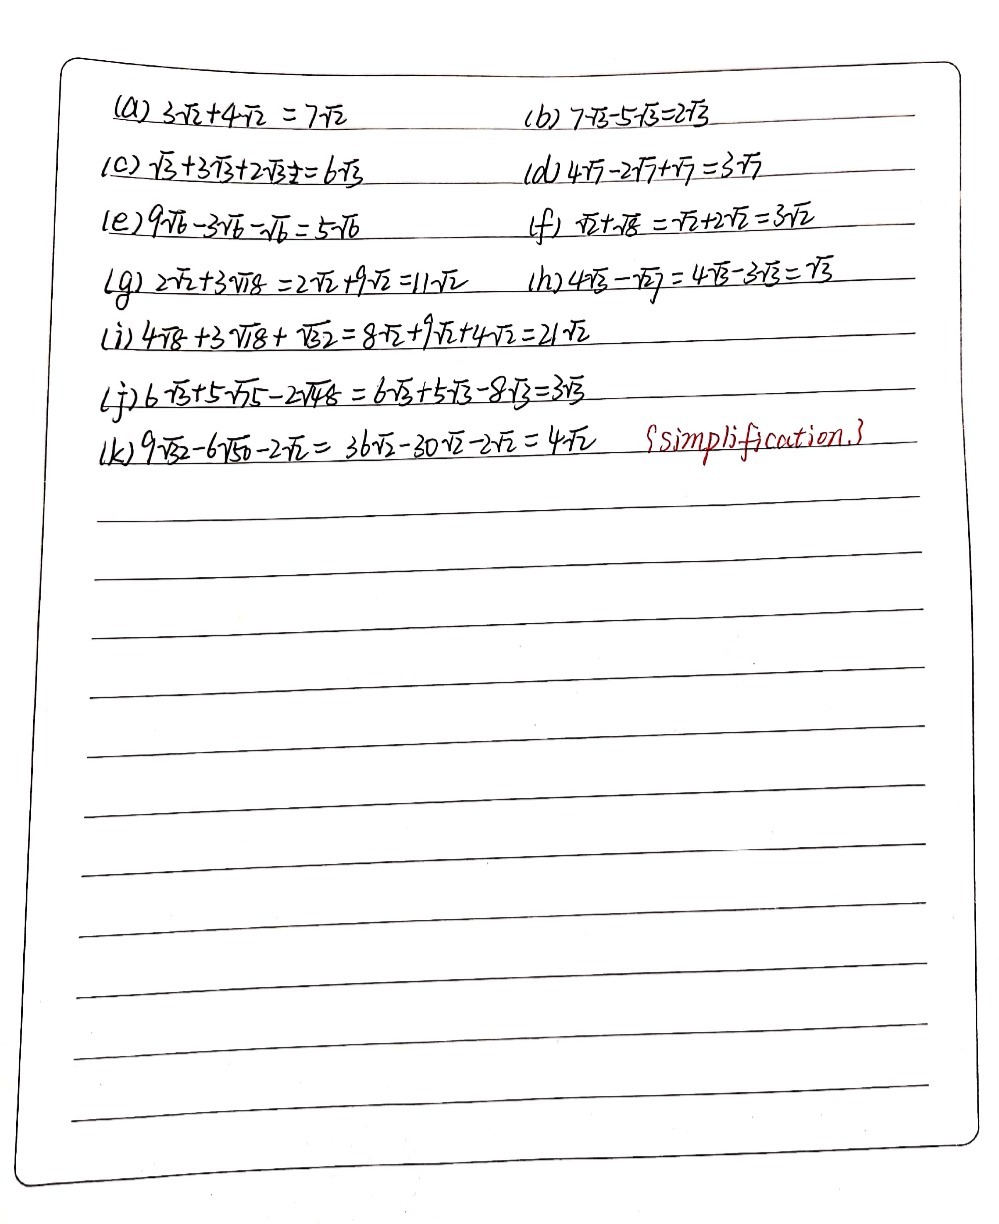 (a) 3√2+4√2 = 7√2 (b) 7√3-5√3=2√3
(c) √3+3√3+2√3=6√3 (d) 4√7-2√7+√7=3√7
(e) 9√6-3√6-√6=5√6 (f) √2+√8=√2+2√2=3√2
(g) 2√2+3√18=2√2+9√2=11√2 (h) 4√3-√27=4√3-3√3=√3
(i) 4√8+3√18+√32=8√2+9√2+4√2=21√2
(j) 6√3+5√75-2√48=6√3+5√3-8√3=3√3
(k) 9√32-6√50-2√2= 36√2-30√2-2√2=4√2 {simplification.}